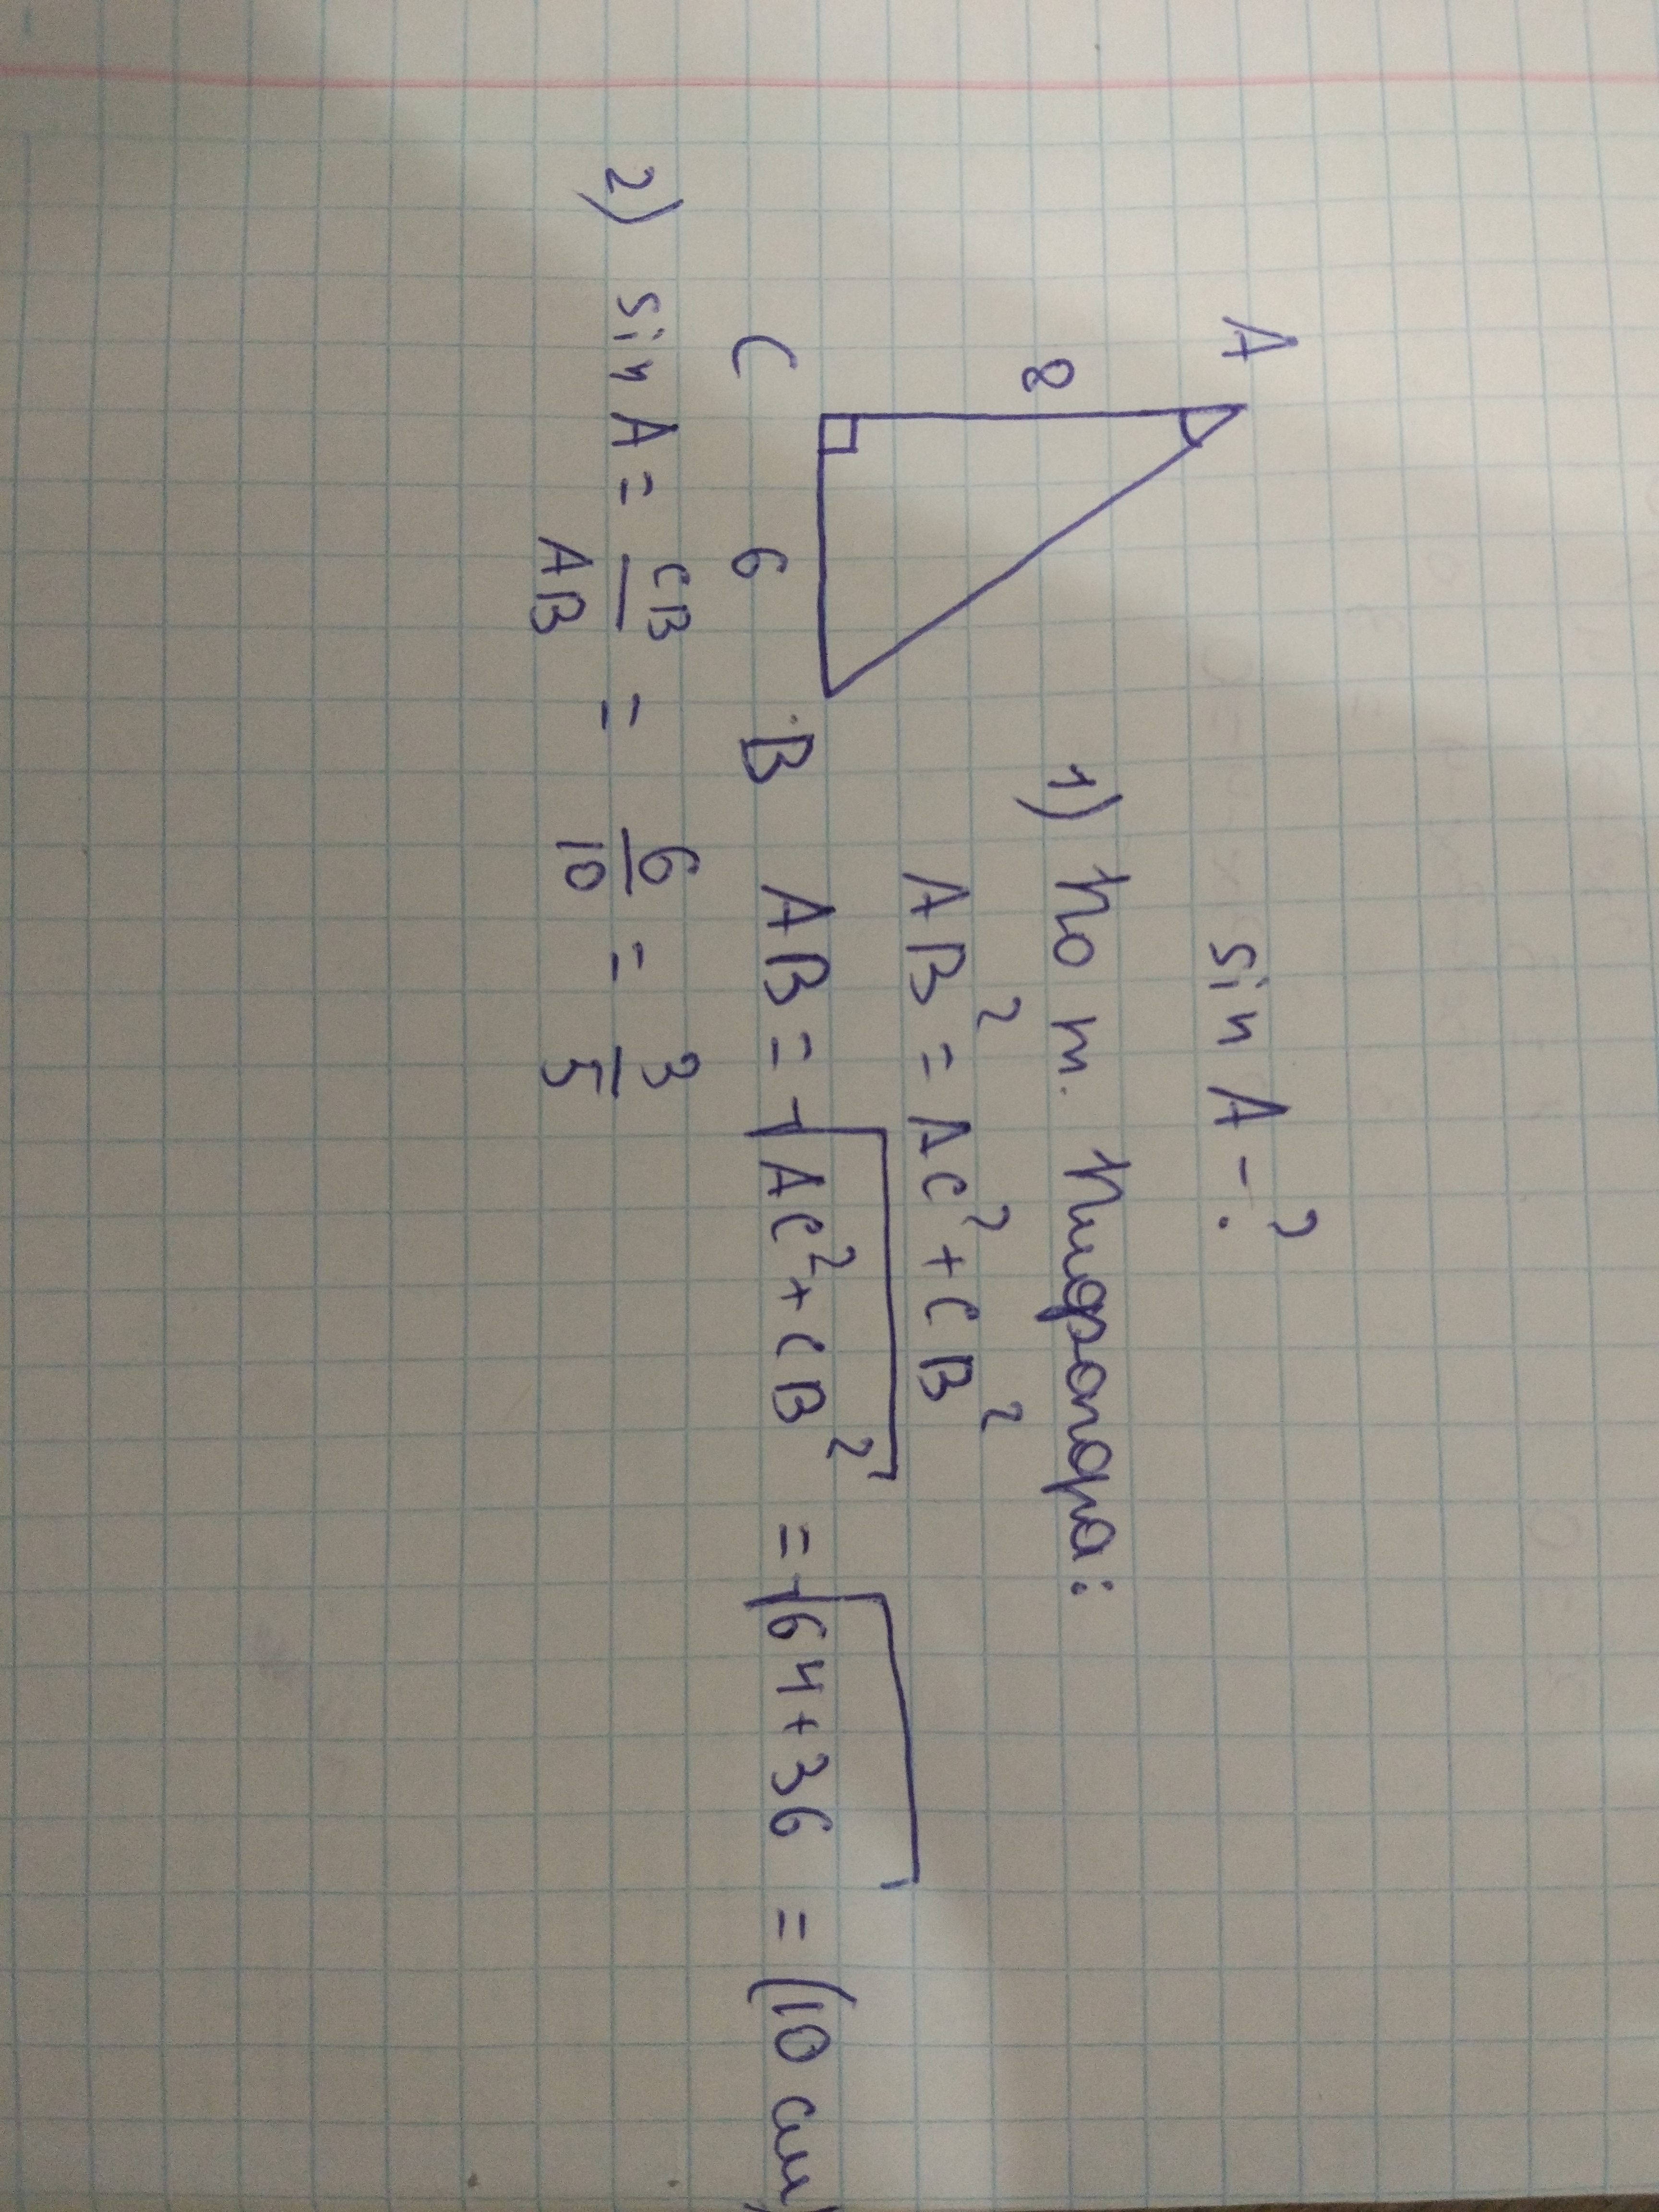 sin A - ?
A
8
1) По т. Пифагора:
AB² = AC² + CB²
C 6 B
AB = √AC² + CB² = √64 + 36 = (10 см)
2) sin A = CB/AB = 6/10 = 3/5